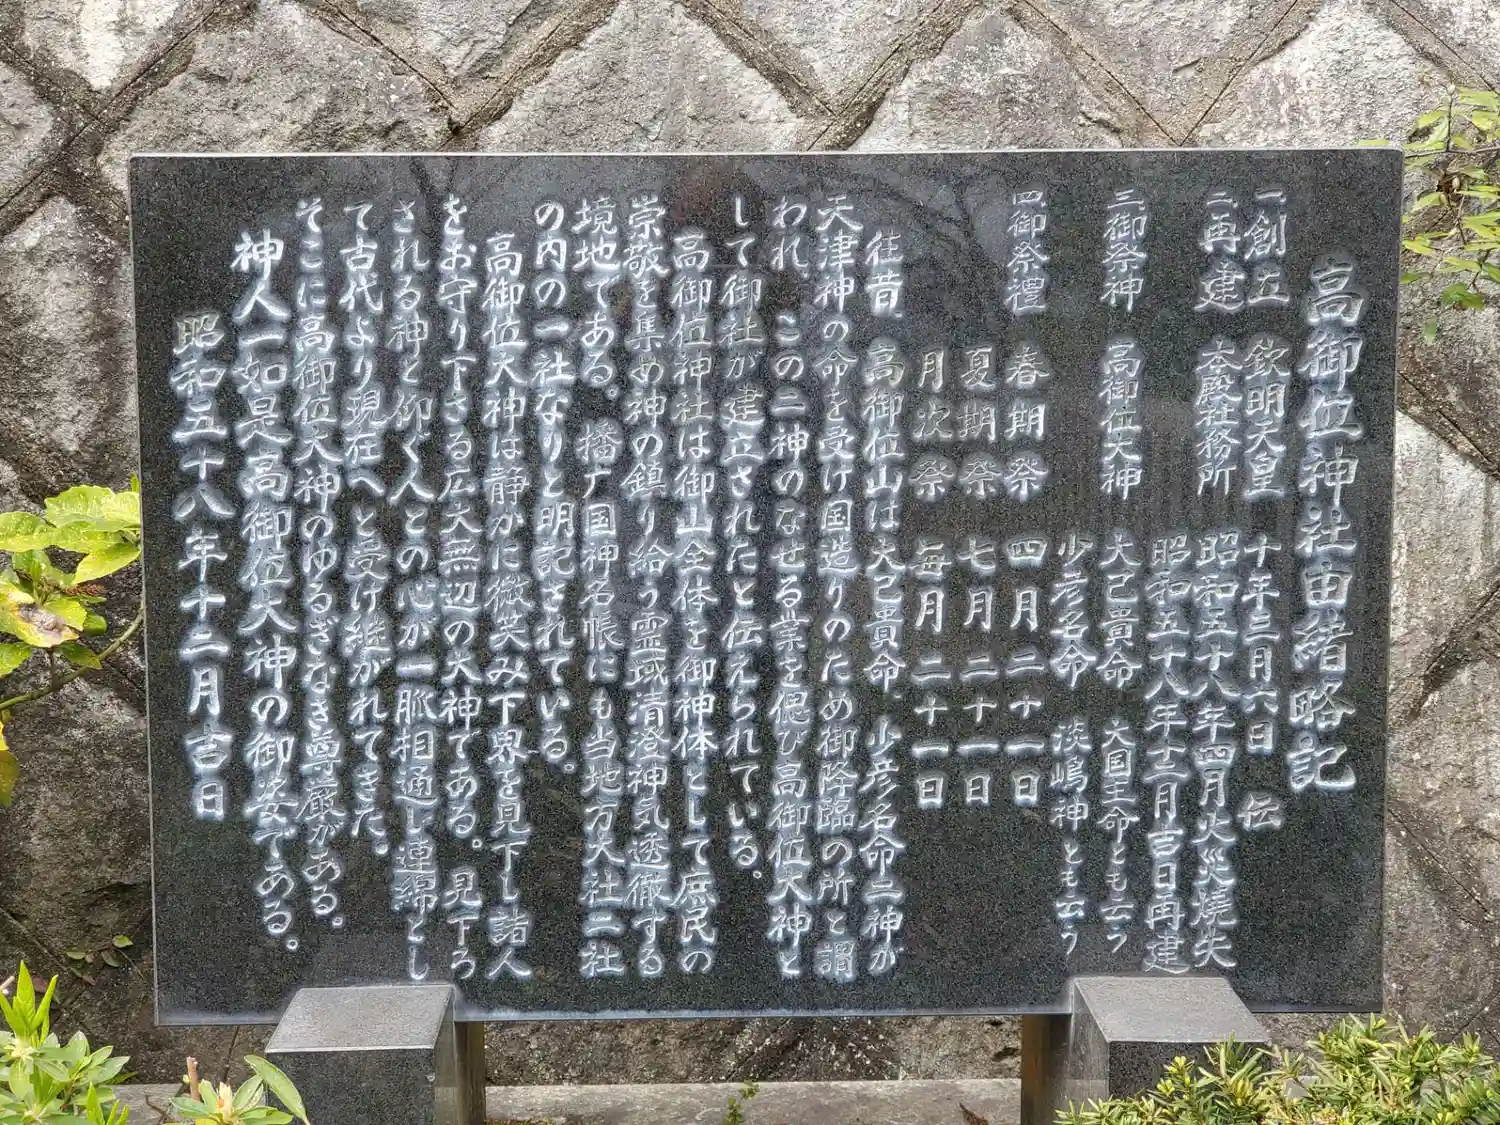 高御位神社由緒略記
一創立 欽明天皇 十年三月六日 伝
二再建 本殿社務所 昭和五十八年四月火災焼失
昭和五十八年十二月吉日再建
三御祭神 高御位大神 大己貴命 大国主命とも云う
少彦名命 淡嶋神とも云う
四御祭禮 春期祭 四月二十一日
夏期祭 七月二十一日
月次祭 毎月二十一日
往昔、高御位山は大己貴命、少彦名命二神が
天津神の命を受け国造りのため御降臨の所と謂
われ、この二神のなせる業を偲び高御位大神と
して御社が建立されたと伝えられている。
高御位神社は御山全体を御神体として庶民の
崇敬を集め神の鎮り給う霊域清澄神気透徹する
境地である。播广国神名帳にも当地方大社二社
の内の一社なりと明記されている。
高御位大神は静かに微笑み下界を見下し諸人
をお守り下さる広大無辺の大神である。見下ろ
される神と仰ぐ人との心が一脈相通し連綿とし
て古代より現在へと受け継がれてきた。
そこに高御位大神のゆるぎなき尊厳がある。
神人一如是高御位大神の御姿である。
昭和五十八年十二月吉日